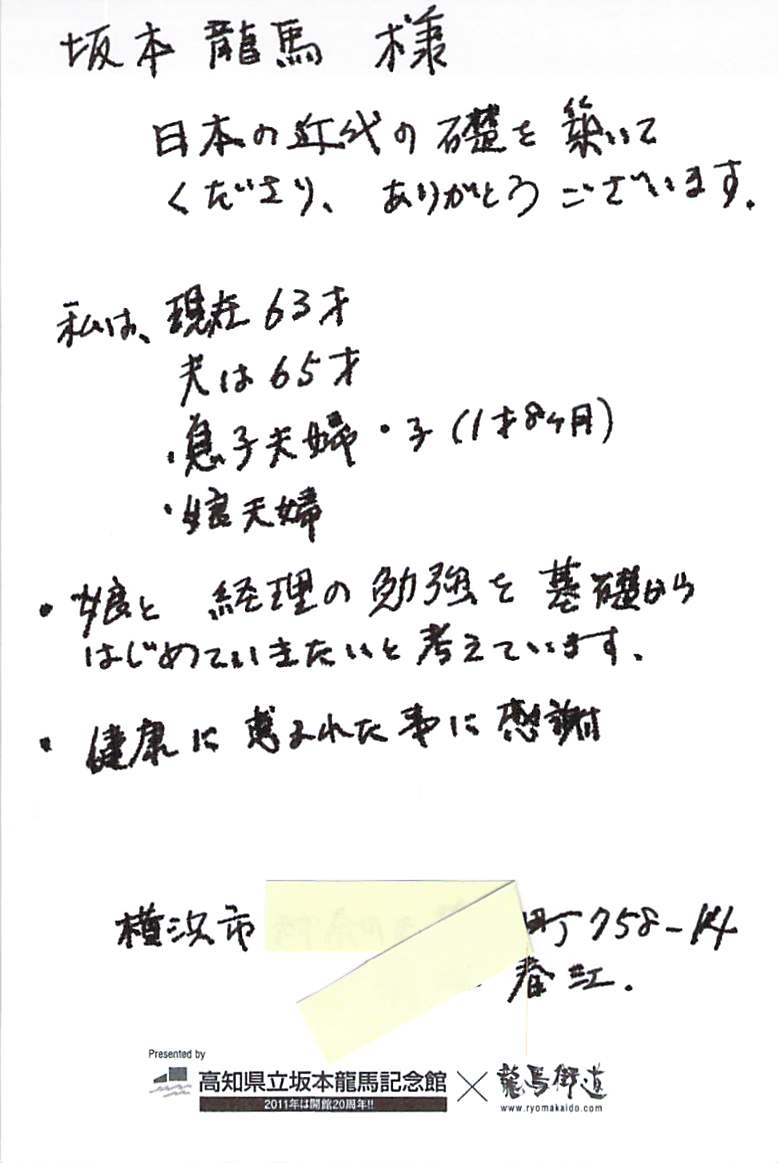 坂本龍馬 様
日本の近代の礎を築いて
くださり、ありがとうございます。
私は、現在63才
夫は65才
・息子夫婦・子(1才8ヶ月)
・娘夫婦
・娘と 経理の勉強を基礎から
はじめていきたいと考えています。
・健康に恵まれた事に感謝
横浜市 町758-14
春江.
Presented by
高知県立坂本龍馬記念館 × 龍馬街道
2011年は開館20周年!!
www.ryomakaido.com